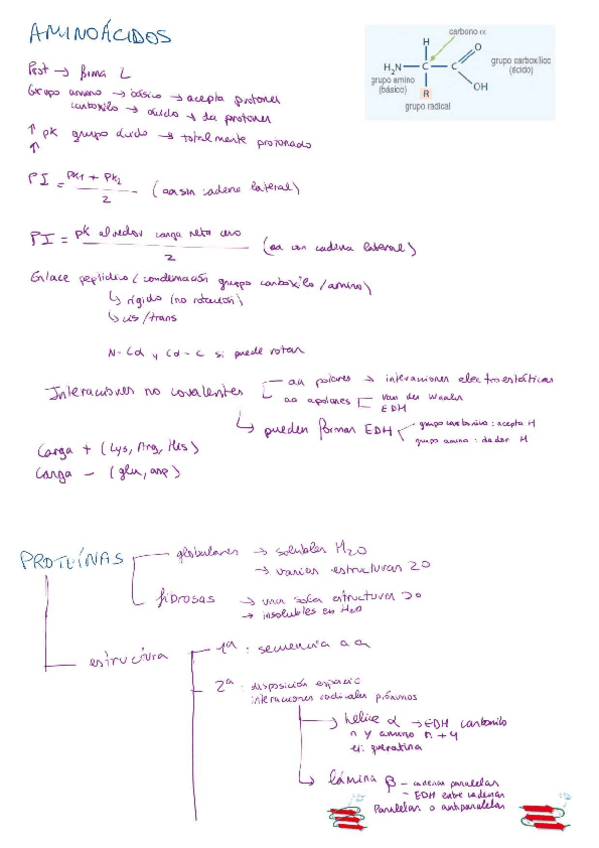 AMINOÁCIDOS
carbono α
H
O
H₂N — C — C
OH
R
grupo amino
(básico)
grupo carboxílico
(ácido)
grupo radical
Prot → forma L
Grupo amino → básico → acepta protones
carboxilo → ácido → da protones
↑ pk grupo ácido → totalmente protonado
↑
PI = pk1 + pk2 / 2 (aa sin cadena lateral)
PI = pk alrededor carga neta cero / 2 (aa con cadena lateral)
Enlace peptídico (condensación grupo carboxilo/amino)
↳ rígido (no rotación)
↳ cis/trans
N-Cα y Cα-C si puede rotar
Interacciones no covalentes
aa polares → interacciones electroestáticas
aa apolares
Van der Waals
EDH
↳ pueden formar EDH
grupo carbonilo: acepta H
grupo amino: dador H
Carga + (Lys, Arg, His)
Carga - (glu, asp)
PROTEÍNAS
globulares → solubles H₂O
→ varias estructuras 2º
fibrosas → una sola estructura 2º
→ insolubles en H₂O
estructura
1ª: secuencia aa
2ª: disposición espacio
interacciones radicales próximos
hélice α → EDH carbonilo
n y amino n+4
ej: queratina
lámina β - cadenas paralelas
- EDH entre cadenas
Paralelas o antiparalelas